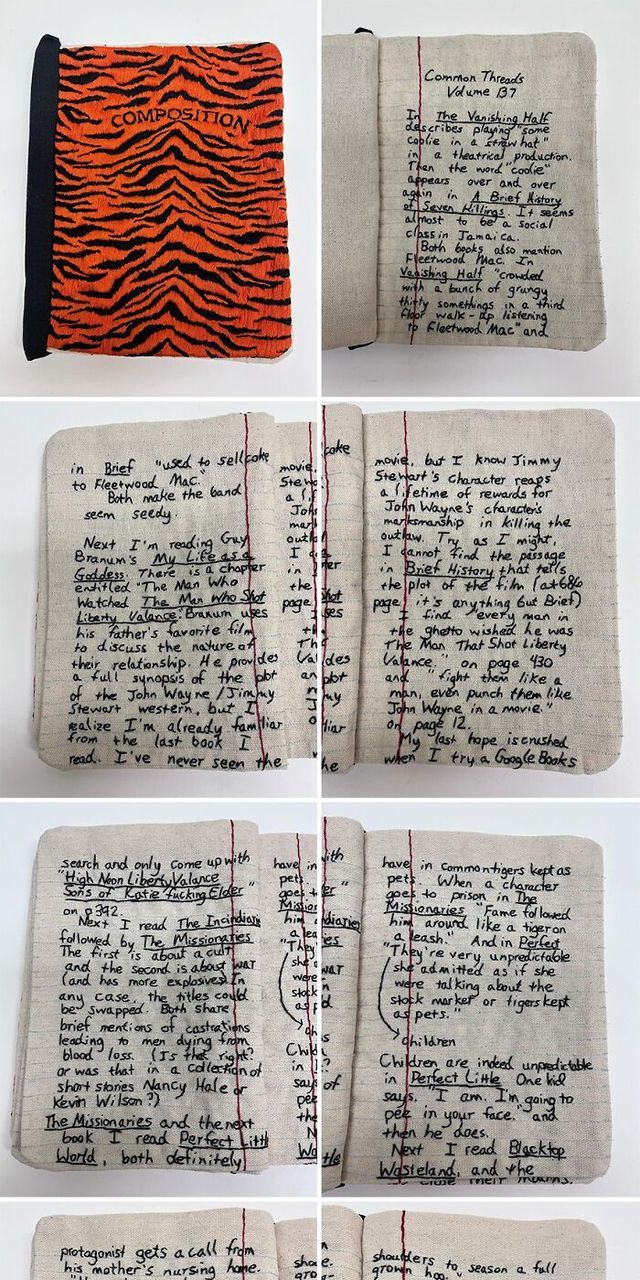 COMPOSITION
Common Threads
Volume 137
In The Vanishing Half
describes playing "some
coolie in a straw hat"
in a theatrical production.
Then the word "coolie"
appears over and over
again in A Brief History
of Seven Killings. It seems
almost to be a social
class in Jamaica.
Both books also mention
Fleetwood Mac. In
Vanishing Half "crowded
with a bunch of grungy
thirty somethings in a third
floor walk-up listening
to Fleetwood Mac" and
in Brief "used to sell coke
to Fleetwood Mac."
Both make the band
seem seedy.
Next I'm reading Guy
Branum's My Life as a
Goddess. There is a chapter
entitled "The Man Who
Watched The Man Who Shot
Liberty Valance." Branum uses
his father's favorite film
to discuss the nature of
their relationship. He provides
a full synopsis of the plot
of the John Wayne/Jimmy
Stewart western, but I
realize I'm already familiar
from the last book I
read. I've never seen the
movie, but I know Jimmy
Stewart's character reaps
a lifetime of rewards for
John Wayne's character's
marksmanship in killing the
outlaw. Try as I might,
I cannot find the passage
in Brief History that tells
the plot of the film (at 686
page it's anything but Brief)
I find "every man in
the ghetto wished he was
The Man That Shot Liberty
Valance." on page 430
and "fight them like a
man, even punch them like
John Wayne in a movie."
on page 12.
My last hope is crushed
when I try a Google Books
search and only come up with
"High Noon Liberty Valance
Sons of Katie fucking Elder"
on p 392.
Next I read The Incindiaries
followed by The Missionaries
The first is about a cult
and the second is about war
(and has more explosives) In
any case, the titles could
be swapped. Both share
brief mentions of castrations
leading to men dying from
blood loss. (Is that right?
or was that in a collection of
short stories Nancy Hale or
Kevin Wilson?)
The Missionaries and the next
book I read Perfect Little
World, both definitely
have in common tigers kept as
pets. When a character
goes to prison in The
Missionaries "Fame followed
him around like a tiger on
a leash." And in Perfect
"They're very unpredictable
she admitted as if she
were talking about the
stock market or tigers kept
as pets."
children
Children are indeed unpredictable
in Perfect Little One kid
says, "I am. I'm going to
pee in your face." and
then he does.
Next I read Blacktop
Wasteland, and the
protagonist gets a call from
his mother's nursing home.
shoulders to season a full